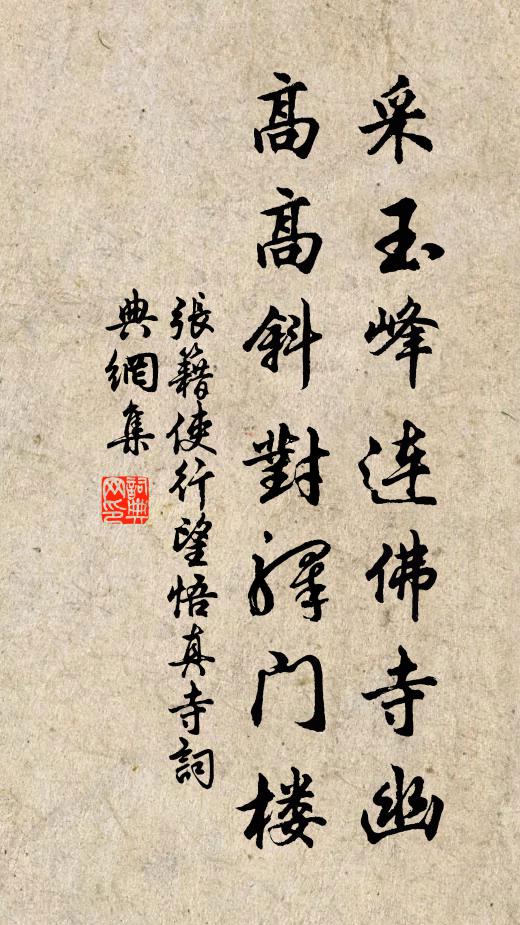 采玉峰连佛寺幽
高高斜對驛門楼
張籍使行望悟真寺詞
典網集
詞典网印